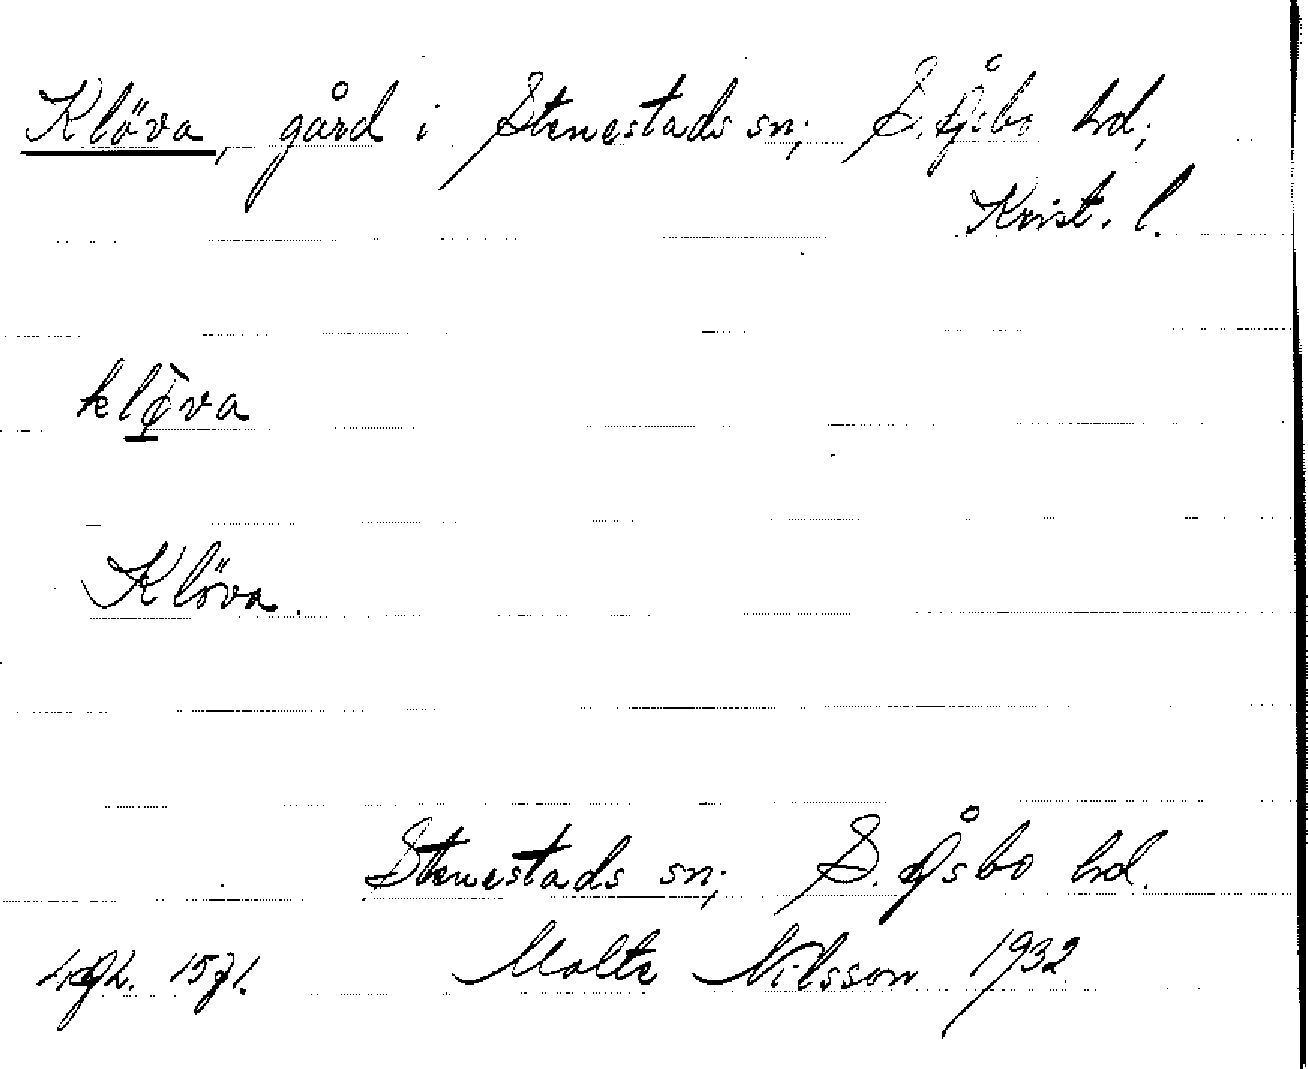 Klöva, gård i Stenestads sn; S. Åsbo hd;
Krist. l.
klø̀va
Klöva.
Stenestads sn; S. Åsbo hd.
Malte Nilsson 1932